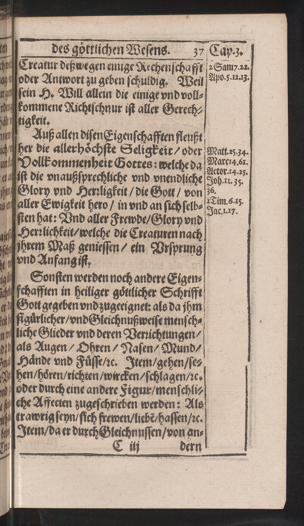 des göttlichen Wesens. 37 Cap. 3.
Creatur deßwegen einige Rechenschafft
oder Antwort zu geben schuldig. Weil
sein H. Will allein die einige vnd voll-
kommene Richtschnur ist aller Gerech-
tigkeit.
Auß allen disen Eigenschafften fleußt
her die allerhöchste Seligkeit / oder
Vollkommenheit Gottes: welche da
ist die vnaußsprechliche vnd vnendliche
Glory vnd Herrligkeit / die Gott / von
aller Ewigkeit hero / in vnd an sich selb-
sten hat: Vnd aller Frewde / Glory vnd
Herrlichkeit / welche die Creaturen nach
jhrem Maß geniessen / ein Vrsprung
vnd Anfang ist.
Sonsten werden noch andere Eigen-
schafften in heiliger göttlicher Schrifft
Gott gegeben vnd zugeeignet: als da jhm
figürlicher / vnd Gleichnußweise mensch-
liche Glieder vnd deren Verrichtungen /
als Augen / Ohren / Nasen / Mund /
Hände vnd Füsse / ꝛc. Item / gehen / se-
hen / hören / richten / wircken / schlagen / ꝛc.
oder durch eine andere Figur / menschli-
che Affecten zugeschrieben werden: Als
trawrig seyn / sich frewen / liebē / hassen / ꝛc.
Item / da er durch Gleichnussen / von an-
C iij dern
2 Sam. 7. 22.
Apo. 5. 12. 13.
Matt. 25. 34.
Marc. 14. 61.
Actor. 14. 15.
Joh. 11. 35.
36.
1 Tim. 6. 15.
Jac. 1. 17.